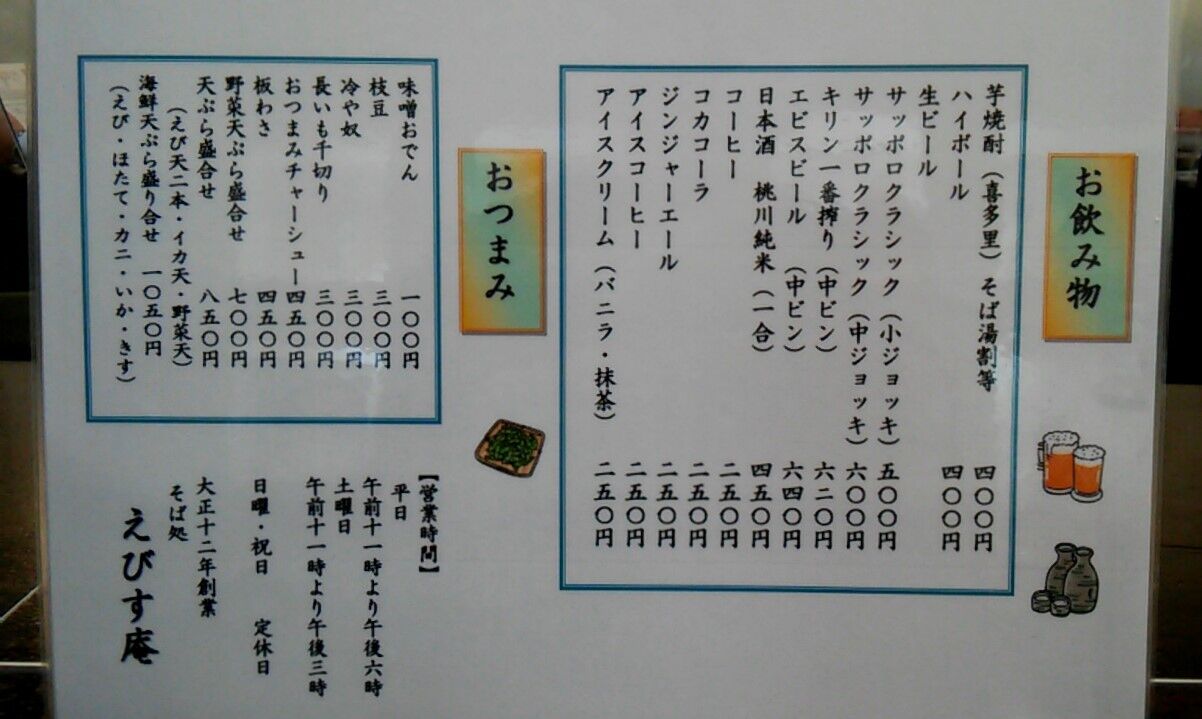 お飲み物
芋焼酎（喜多里）そば湯割等 四〇〇円
ハイボール 四〇〇円
生ビール
サッポロクラシック（小ジョッキ）五〇〇円
サッポロクラシック（中ジョッキ）六〇〇円
キリン一番搾り（中ビン）六二〇円
エビスビール（中ビン）六四〇円
日本酒 桃川純米（一合）四五〇円
コーヒー 二五〇円
コカコーラ 二五〇円
ジンジャーエール 二五〇円
アイスコーヒー 二五〇円
アイスクリーム（バニラ・抹茶）二五〇円
おつまみ
味噌おでん 一〇〇円
枝豆 三〇〇円
冷や奴 三〇〇円
長いも千切り 三〇〇円
おつまみチャーシュー 四五〇円
板わさ 四五〇円
野菜天ぷら盛合せ 七〇〇円
天ぷら盛合せ 八五〇円
（えび天二本・イカ天・野菜天）
海鮮天ぷら盛り合せ 一〇五〇円
（えび・ほたて・カニ・いか・きす）
【営業時間】
平日
午前十一時より午後六時
土曜日
午前十一時より午後三時
日曜・祝日 定休日
大正十二年創業
そば処
えびす庵